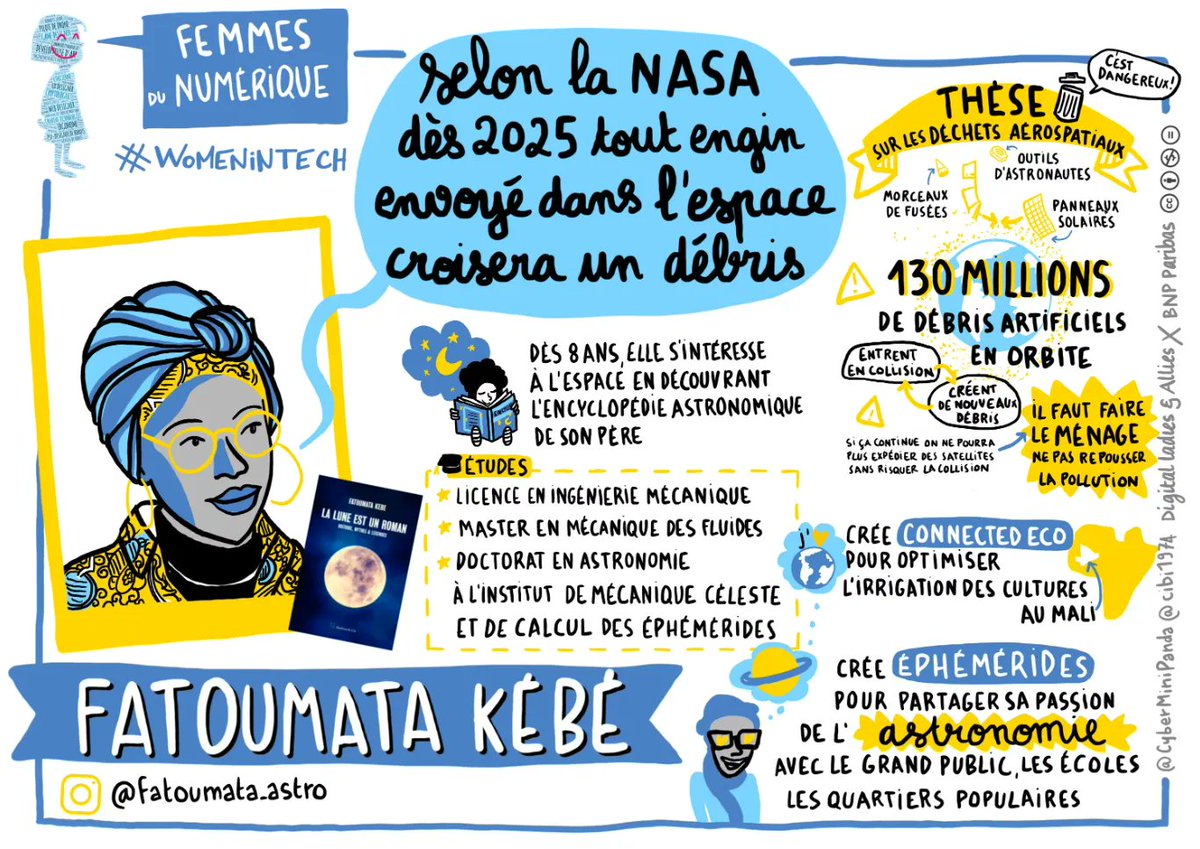 FEMMES
DU NUMÉRIQUE
#WOMENINTECH
Selon la NASA
dès 2025 tout engin
envoyé dans l'espace
croisera un débris
C'EST
DANGEREUX!
THÈSE
SUR LES DÉCHETS AÉROSPATIAUX
OUTILS
D'ASTRONAUTES
MORCEAUX
DE FUSÉES
PANNEAUX
SOLAIRES
130 MILLIONS
DE DÉBRIS ARTIFICIELS
EN ORBITE
ENTRENT
EN COLLISION
CRÉENT
DE NOUVEAUX
DÉBRIS
SI ÇA CONTINUE ON NE POURRA
PLUS EXPÉDIER DES SATELLITES
SANS RISQUER LA COLLISION
IL FAUT FAIRE
LE MÉNAGE
NE PAS REPOUSSER
LA POLLUTION
DÈS 8 ANS, ELLE S'INTÉRESSE
À L'ESPACE EN DÉCOUVRANT
L'ENCYCLOPÉDIE ASTRONOMIQUE
DE SON PÈRE
ÉTUDES
LICENCE EN INGÉNIERIE MÉCANIQUE
MASTER EN MÉCANIQUE DES FLUIDES
DOCTORAT EN ASTRONOMIE
À L'INSTITUT DE MÉCANIQUE CÉLESTE
ET DE CALCUL DES ÉPHÉMÉRIDES
FATOUMATA KEBE
LA LUNE EST UN ROMAN
HISTOIRE, MYTHES & LÉGENDES
CRÉE CONNECTED ECO
POUR OPTIMISER
L'IRRIGATION DES CULTURES
AU MALI
CRÉE ÉPHÉMÉRIDES
POUR PARTAGER SA PASSION
DE L'astronomie
AVEC LE GRAND PUBLIC, LES ÉCOLES
LES QUARTIERS POPULAIRES
FATOUMATA KÉBÉ
@fatoumata_astro
@CyberMiniPanda @cibi1974 Digital ladies & Allies X BNP Paribas